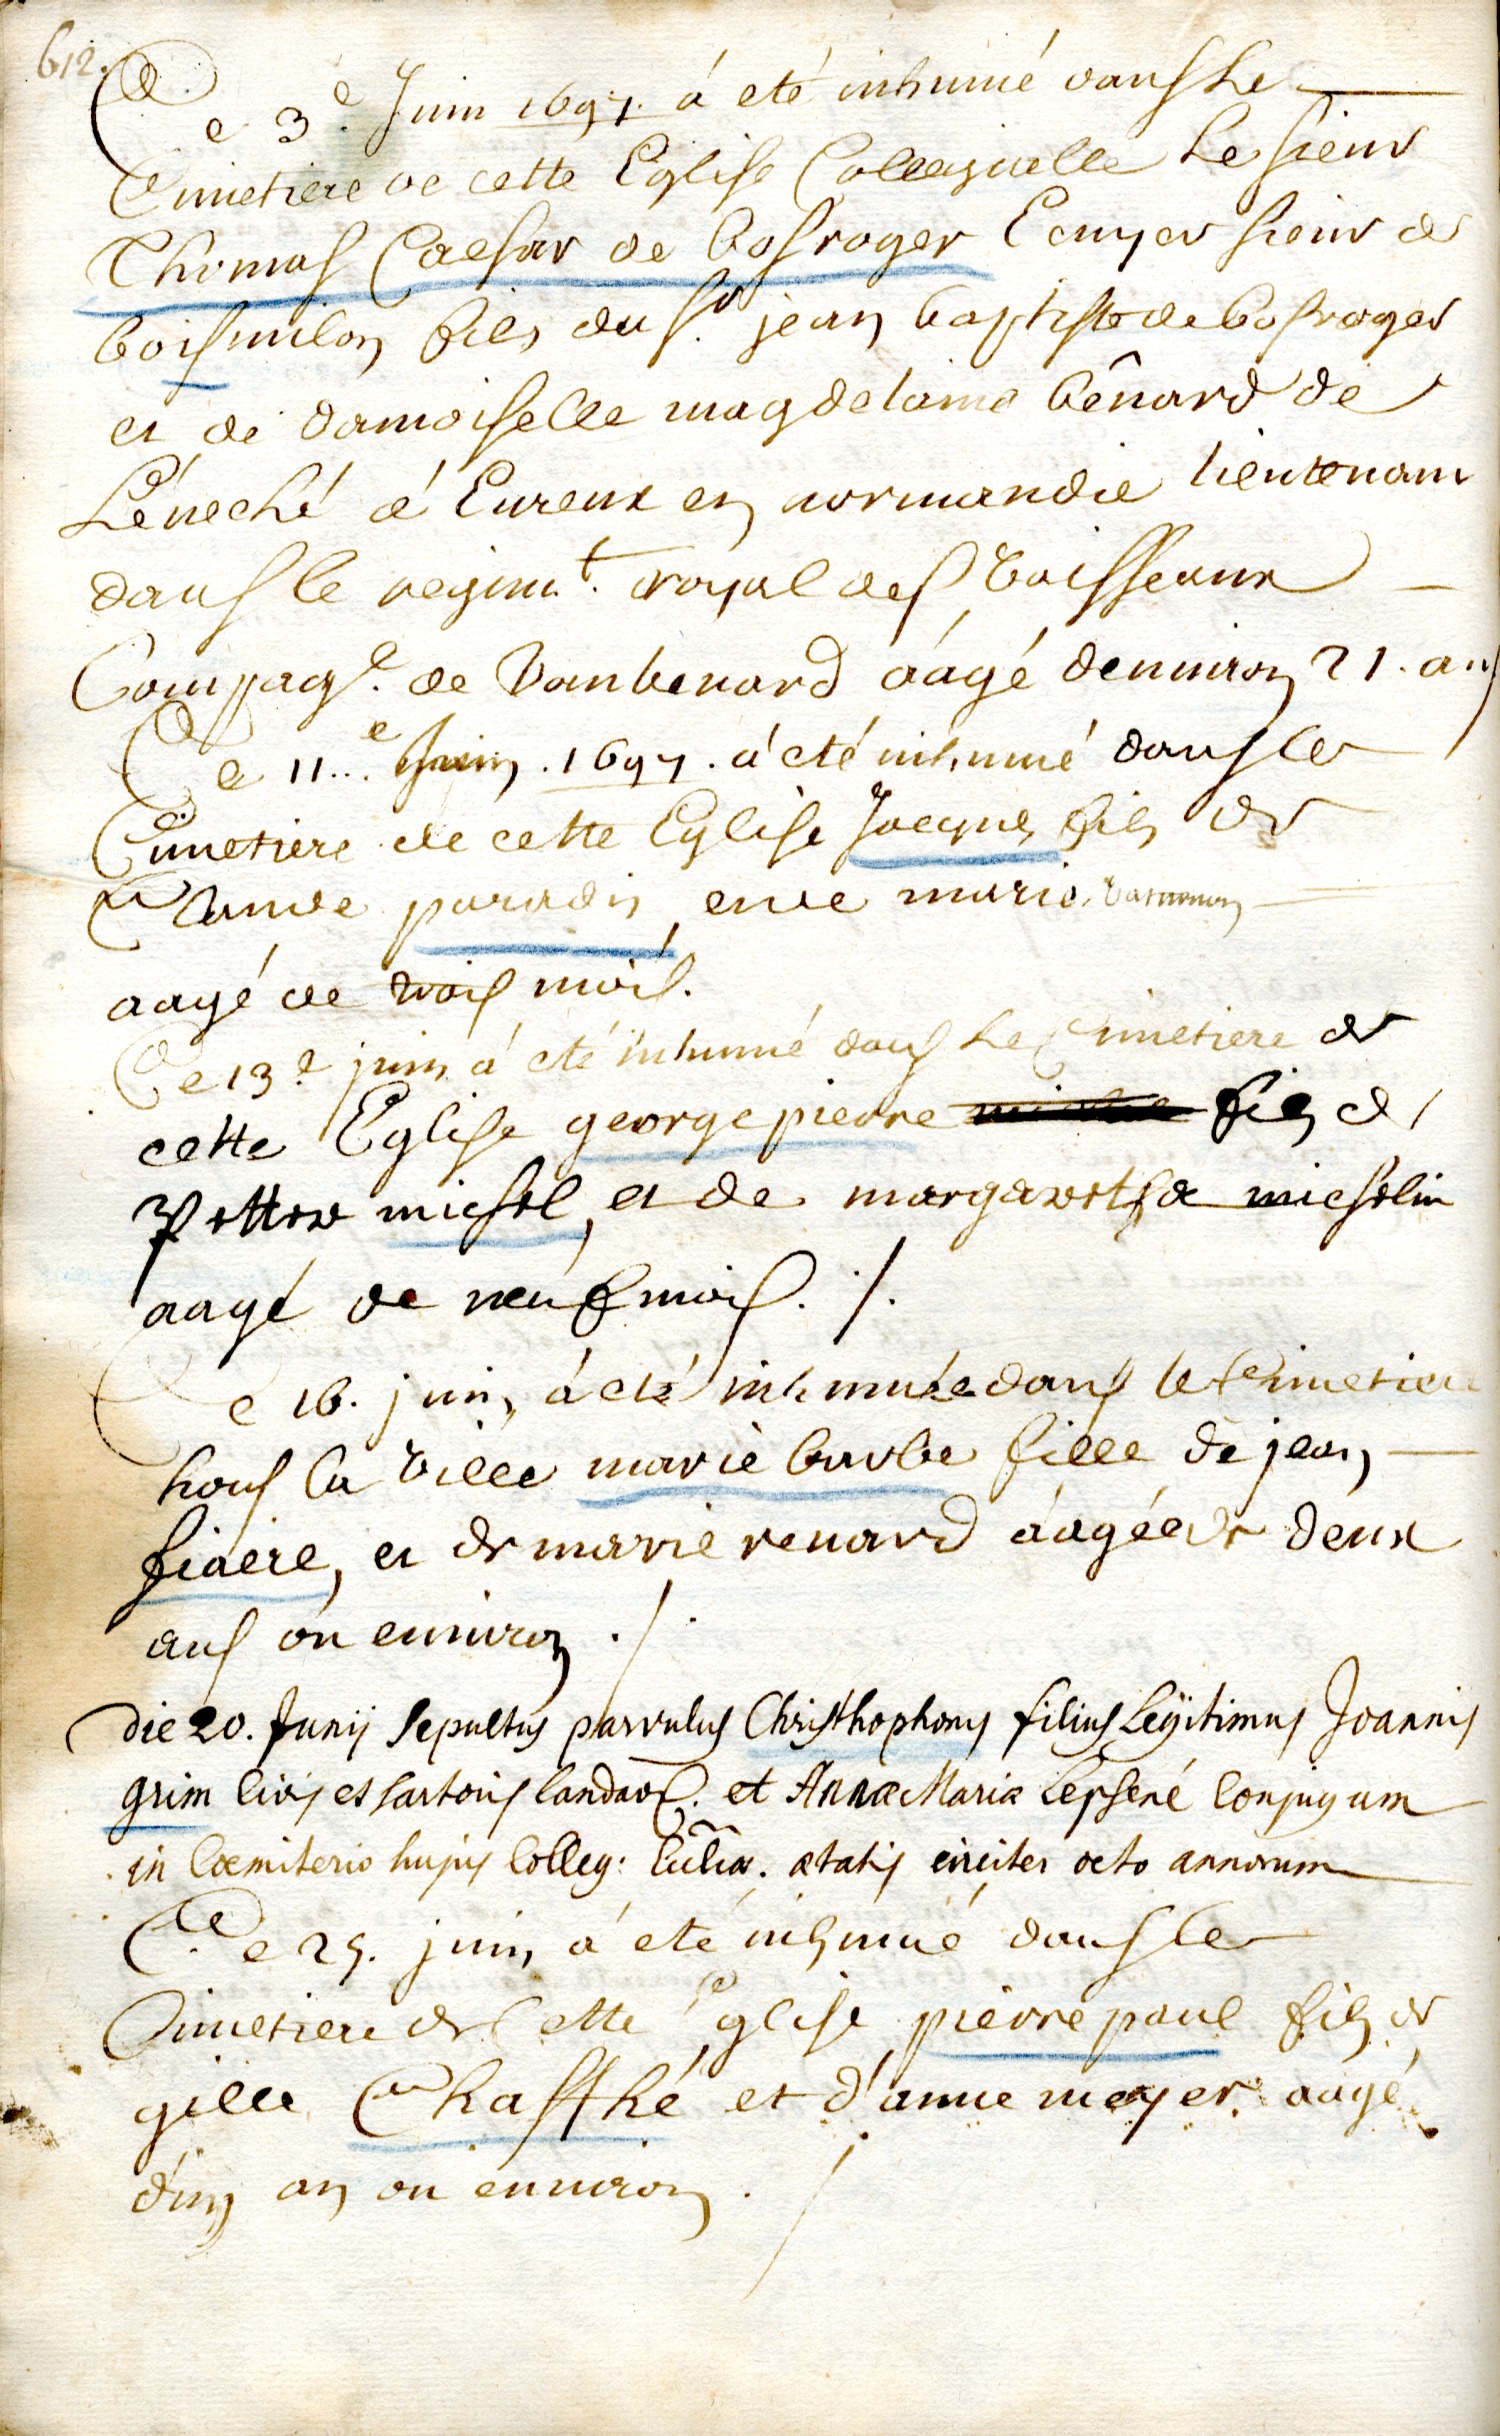 612.
Ce 3.e Juin 1697. á eté inhumé dans Le
Cimetiere de cette Eglise Collegiielle Le sieur
Thomas Caesar de bosroger Ecuyer sieur de
boismilon fils du Sr. jean baptiste de bosroger
et de damoiselle magdelaine bênard de
L'éveché d'Eureux en normandie lieutenant
dans le regimt. royal des Vaisseaux
Compage. de Vanbenard áagé denuiron 21. ans
Ce 11...e Juin. 1697. á eté inhumé dans le
Cimetiere de cette Eglise Jacque fils de
Claude paradis, et de marie
aagé de trois mois.
Ce 13.e juin á eté inhumé dans Le Cimetiere de
cette Eglise george pierre fils de
Petter michel, et de margaretha michelin
aagé de neuf mois. ./.
Ce 16. juin, á eté inhumée dans le Cimetiere
hors la Ville marie barbe fille de jean
fiacre, et de marie renard áagée de deux
ans ou enuiron ./.
Die 20. Junij sepultus parvulus Christhophorus filius Legitimus Joannis
grim civis et sartoris landav. et Annæ Mariæ Lepsené Conjugum
in Cœmiterio hujus Colleg: Eccliæ. ætatis circiter octo annorum
Ce 25. juin, á eté inhumé dans le
Cimetiere de Cette Eglise pierre paul fils de
gille Chaffhé et d'anne meyer. aagé
d'un an ou enuiron. /